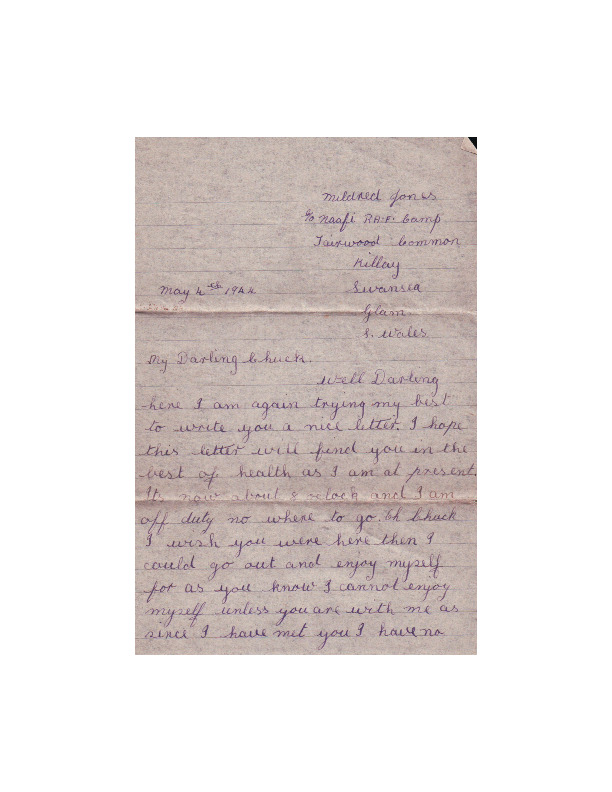 Mildred Jones
c/o Naafi R.A.F. Camp
Fairwood Common
Killay
May 4th 1944
Swansea
Glam.
S. Wales
My Darling Chuck.
Well Darling
here I am again trying my best
to write you a nice letter. I hope
this letter will find you in the
best of health as I am at present.
Its now about 8 oclock and I am
off duty no where to go. Oh Chuck
I wish you were here then I
could go out and enjoy myself
for as you know I cannot enjoy
myself unless you are with me as
since I have met you I have no